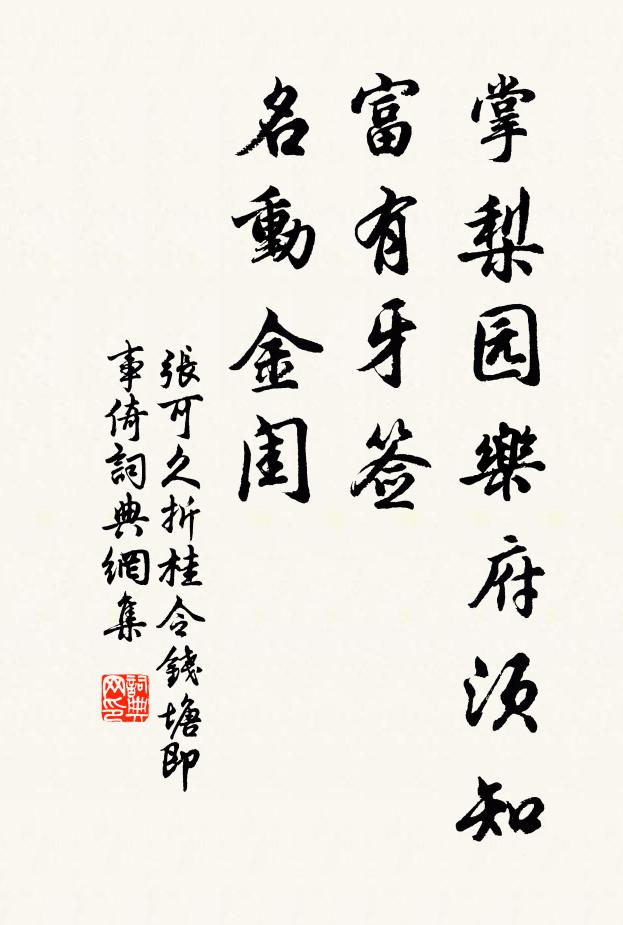 掌梨园樂府须知
富有牙签
名動金闺
張可久折桂令錢塘即
事倚詞典網集
詞典
网印